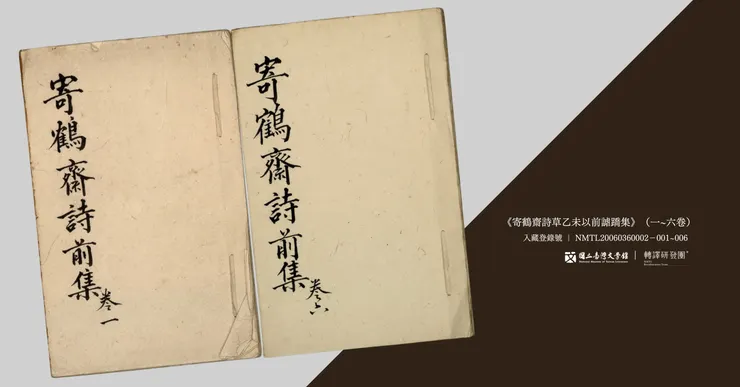 寄鶴齋詩前集
卷一
寄鶴齋詩前集
卷六
《寄鶴齋詩草乙未以前謔蹻集》（一~六卷）
入藏登錄號 | NMTL20060360002-001~006
國立臺灣文學館
轉譯研發團